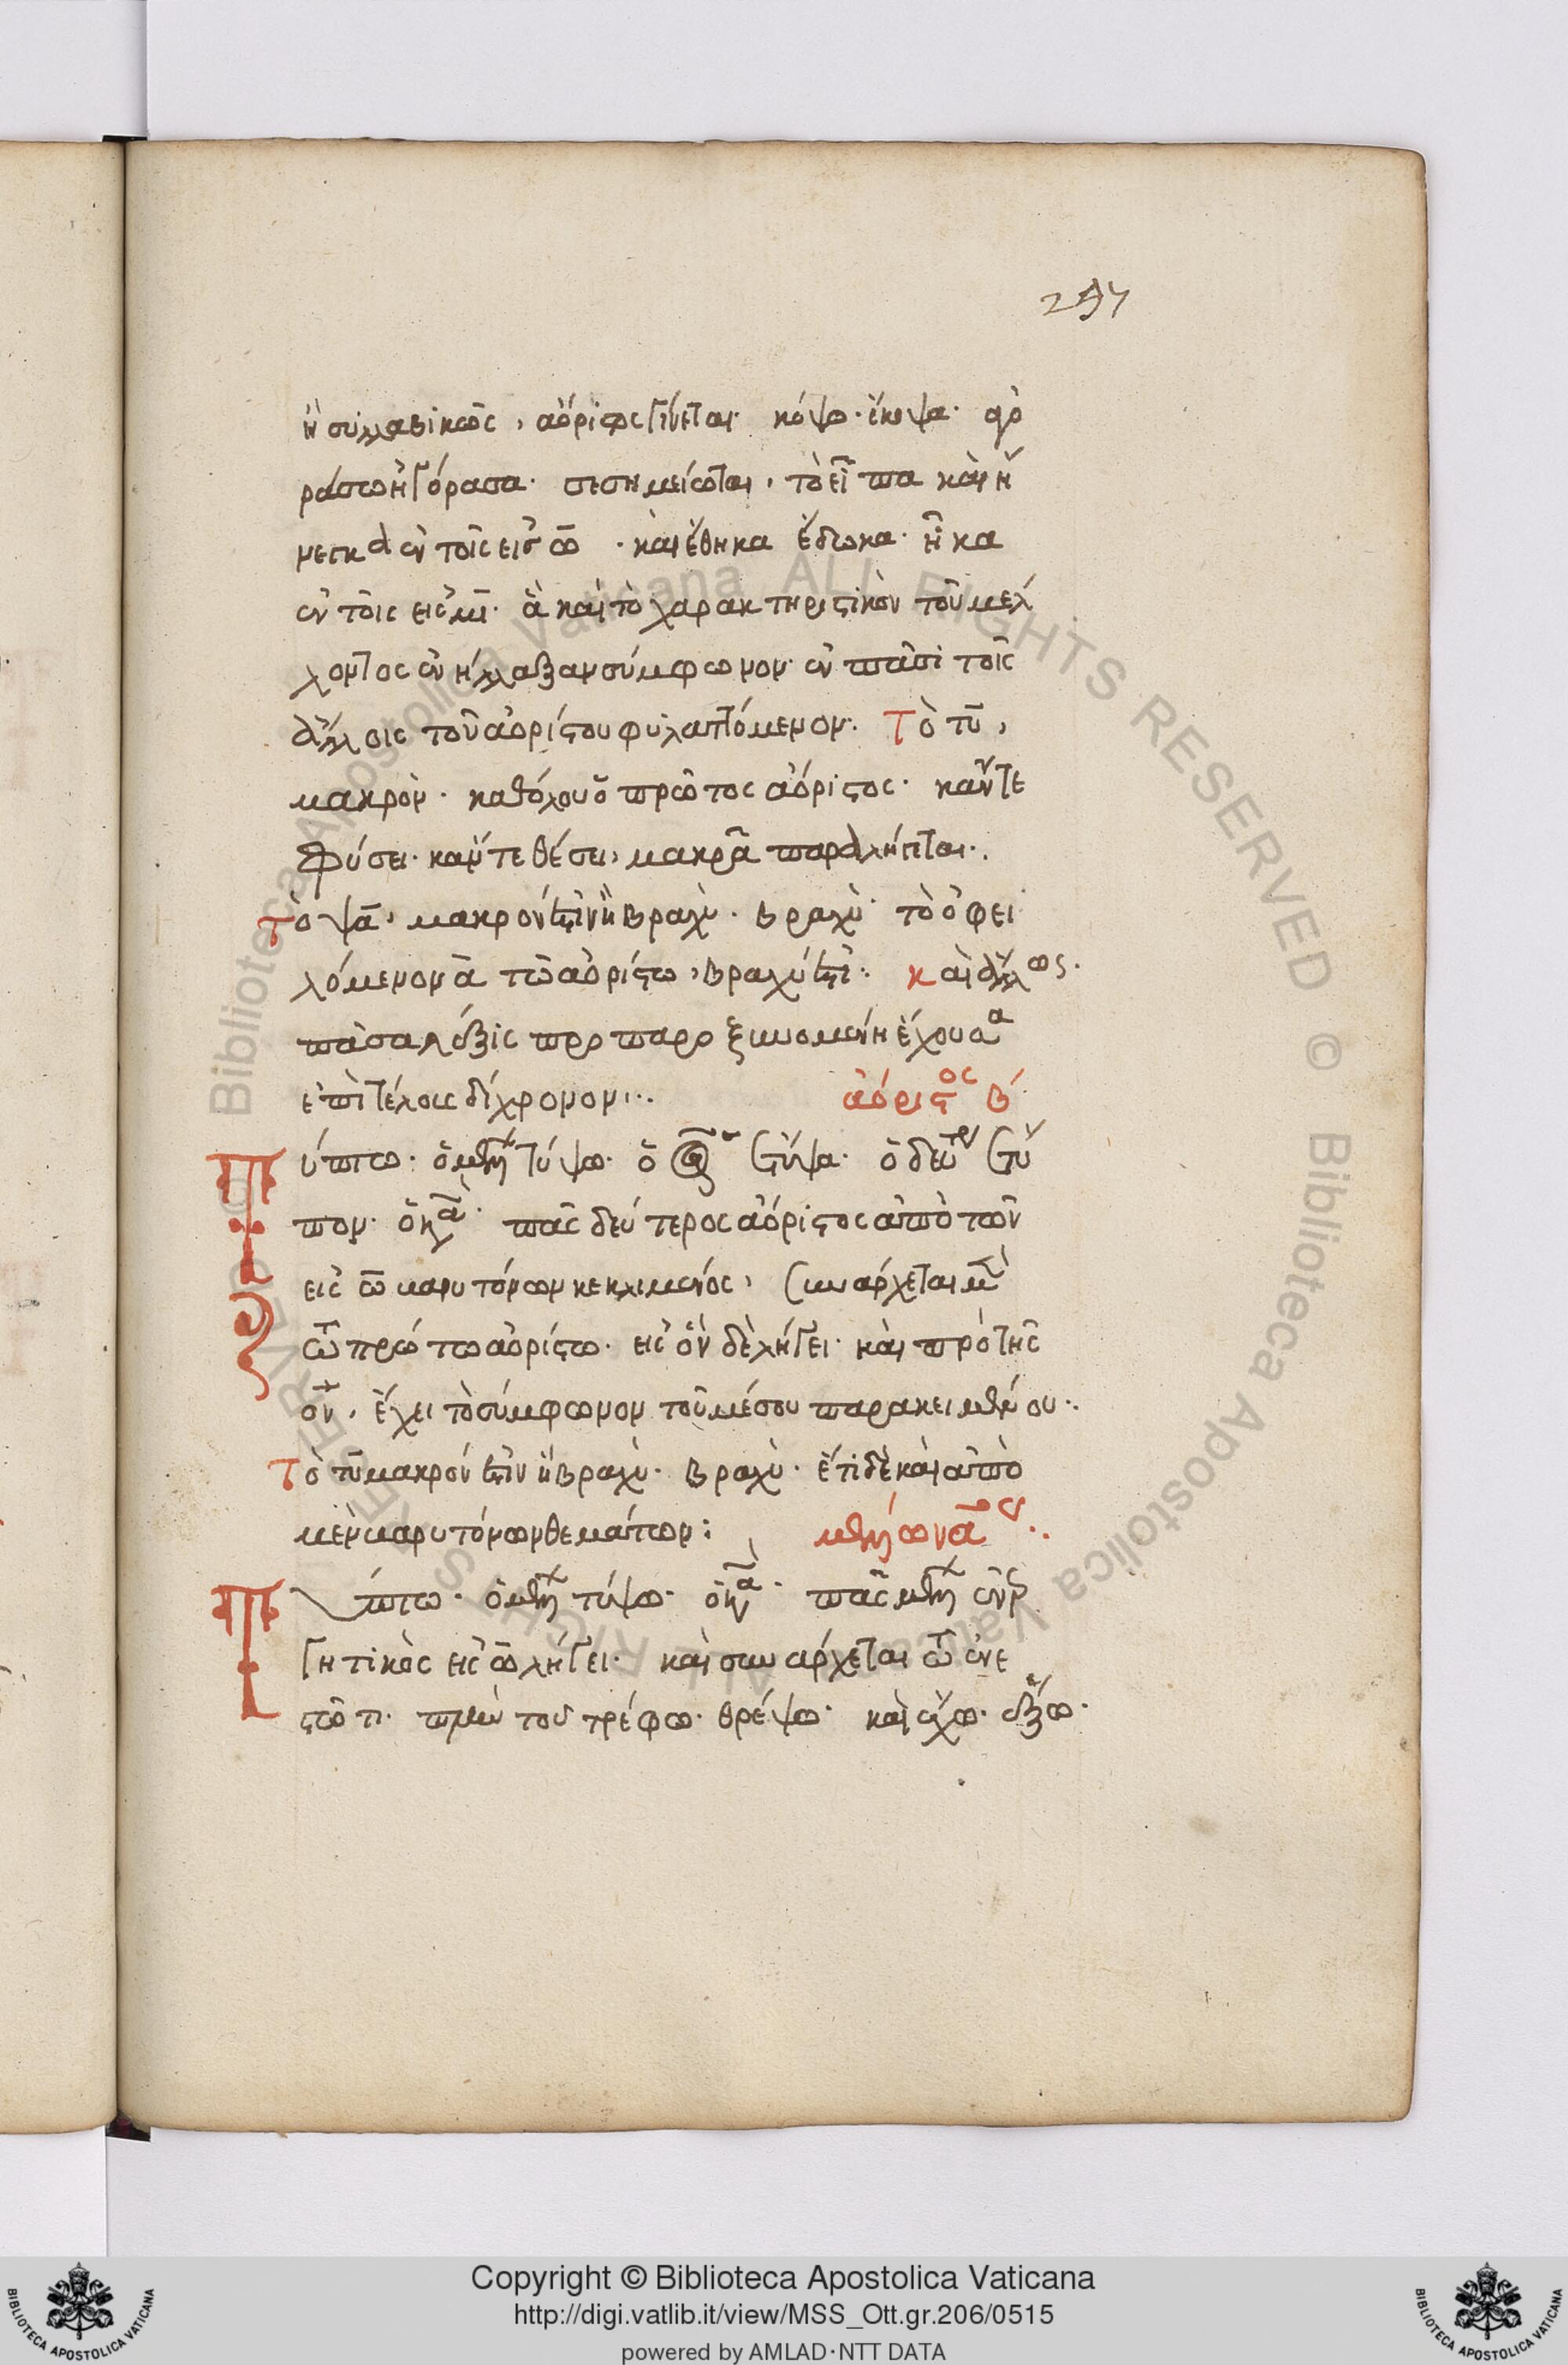 297
ἢ συλλαβικῶς, ἀόριστος γίνεται· κόψω· ἔκοψα· ἀγο
ράσω ἠγόρασα· σεσημείωται, τὸ εἶπα καὶ ἤ
νεγκα ἐν τοῖς εἰς ω̄ · καὶ ἔθηκα ἔδωκα· ἧκα
ἐν τοῖς εἰς μῑ· ἃ καὶ τὸ χαρακτηριστικὸν τοῦ μέλ
λοντος ἐνήλλαξαν σύμφωνον· ἐν πᾶσι τοῖς
ἄλλοις τοῦ ἀορίστου φυλαττόμενον·. Τὸ τῡ,
μακρόν· καθόλου ὁ πρῶτος ἀόριστος· κἄν τε
φύσει· κἄν τε θέσει, μακρᾶ παραλήγεται·.
Τὸ ψᾱ, μακρόν ἐστιν ἢ βραχὺ· βραχὺ· τὸ ὀφει
λόμενον ᾱ τῶ ἀορίστω, βραχύ ἐστι·. καὶ ἄλλως·
πᾶσα λέξις προπαροξυνομένη ἔχουσα
ἐπὶ τέλους δίχρονον·.. ἀόριστος β´
ύπτω· ὁ μέλλων τύψω· ὁ ἀόριστος ἔτυψα· ὁ δεύτερος ἔτυ
πον· ὁ κανὼν· πᾶς δεύτερος ἀόριστος ἀπὸ τῶν
εἰς ω̄ βαρυτόνων κεκλιμένος, συνάρχεται μὲν
τῶ πρώτω ἀορίστω· εἰς ον δὲ λήγει· καὶ πρὸ τῆς
ον, ἔχει τὸ σύμφωνον τοῦ μέσου παρακειμένου·.
Τὸ τῡ μακρόν ἐστιν ἢ βραχὺ· βραχὺ· ἔτι δὲ καὶ ἀπὸ
μὲν βαρυτόνων θεμάτων: μέλλων πρῶτος·.
ύπτω· ὁ μέλλων τύψω· ὁ κανὼν· πᾶς μέλλων ἐνερ
γητικὸς εἰς ω̄ λήγει· καὶ συνάρχεται τῶ ἐνε
στῶτι· πλὴν τοῦ τρέφω· θρέψω· καὶ ἔχω· ἕξω·
Copyright © Biblioteca Apostolica Vaticana
http://digi.vatlib.it/view/MSS_Ott.gr.206/0515
powered by AMLAD·NTT DATA